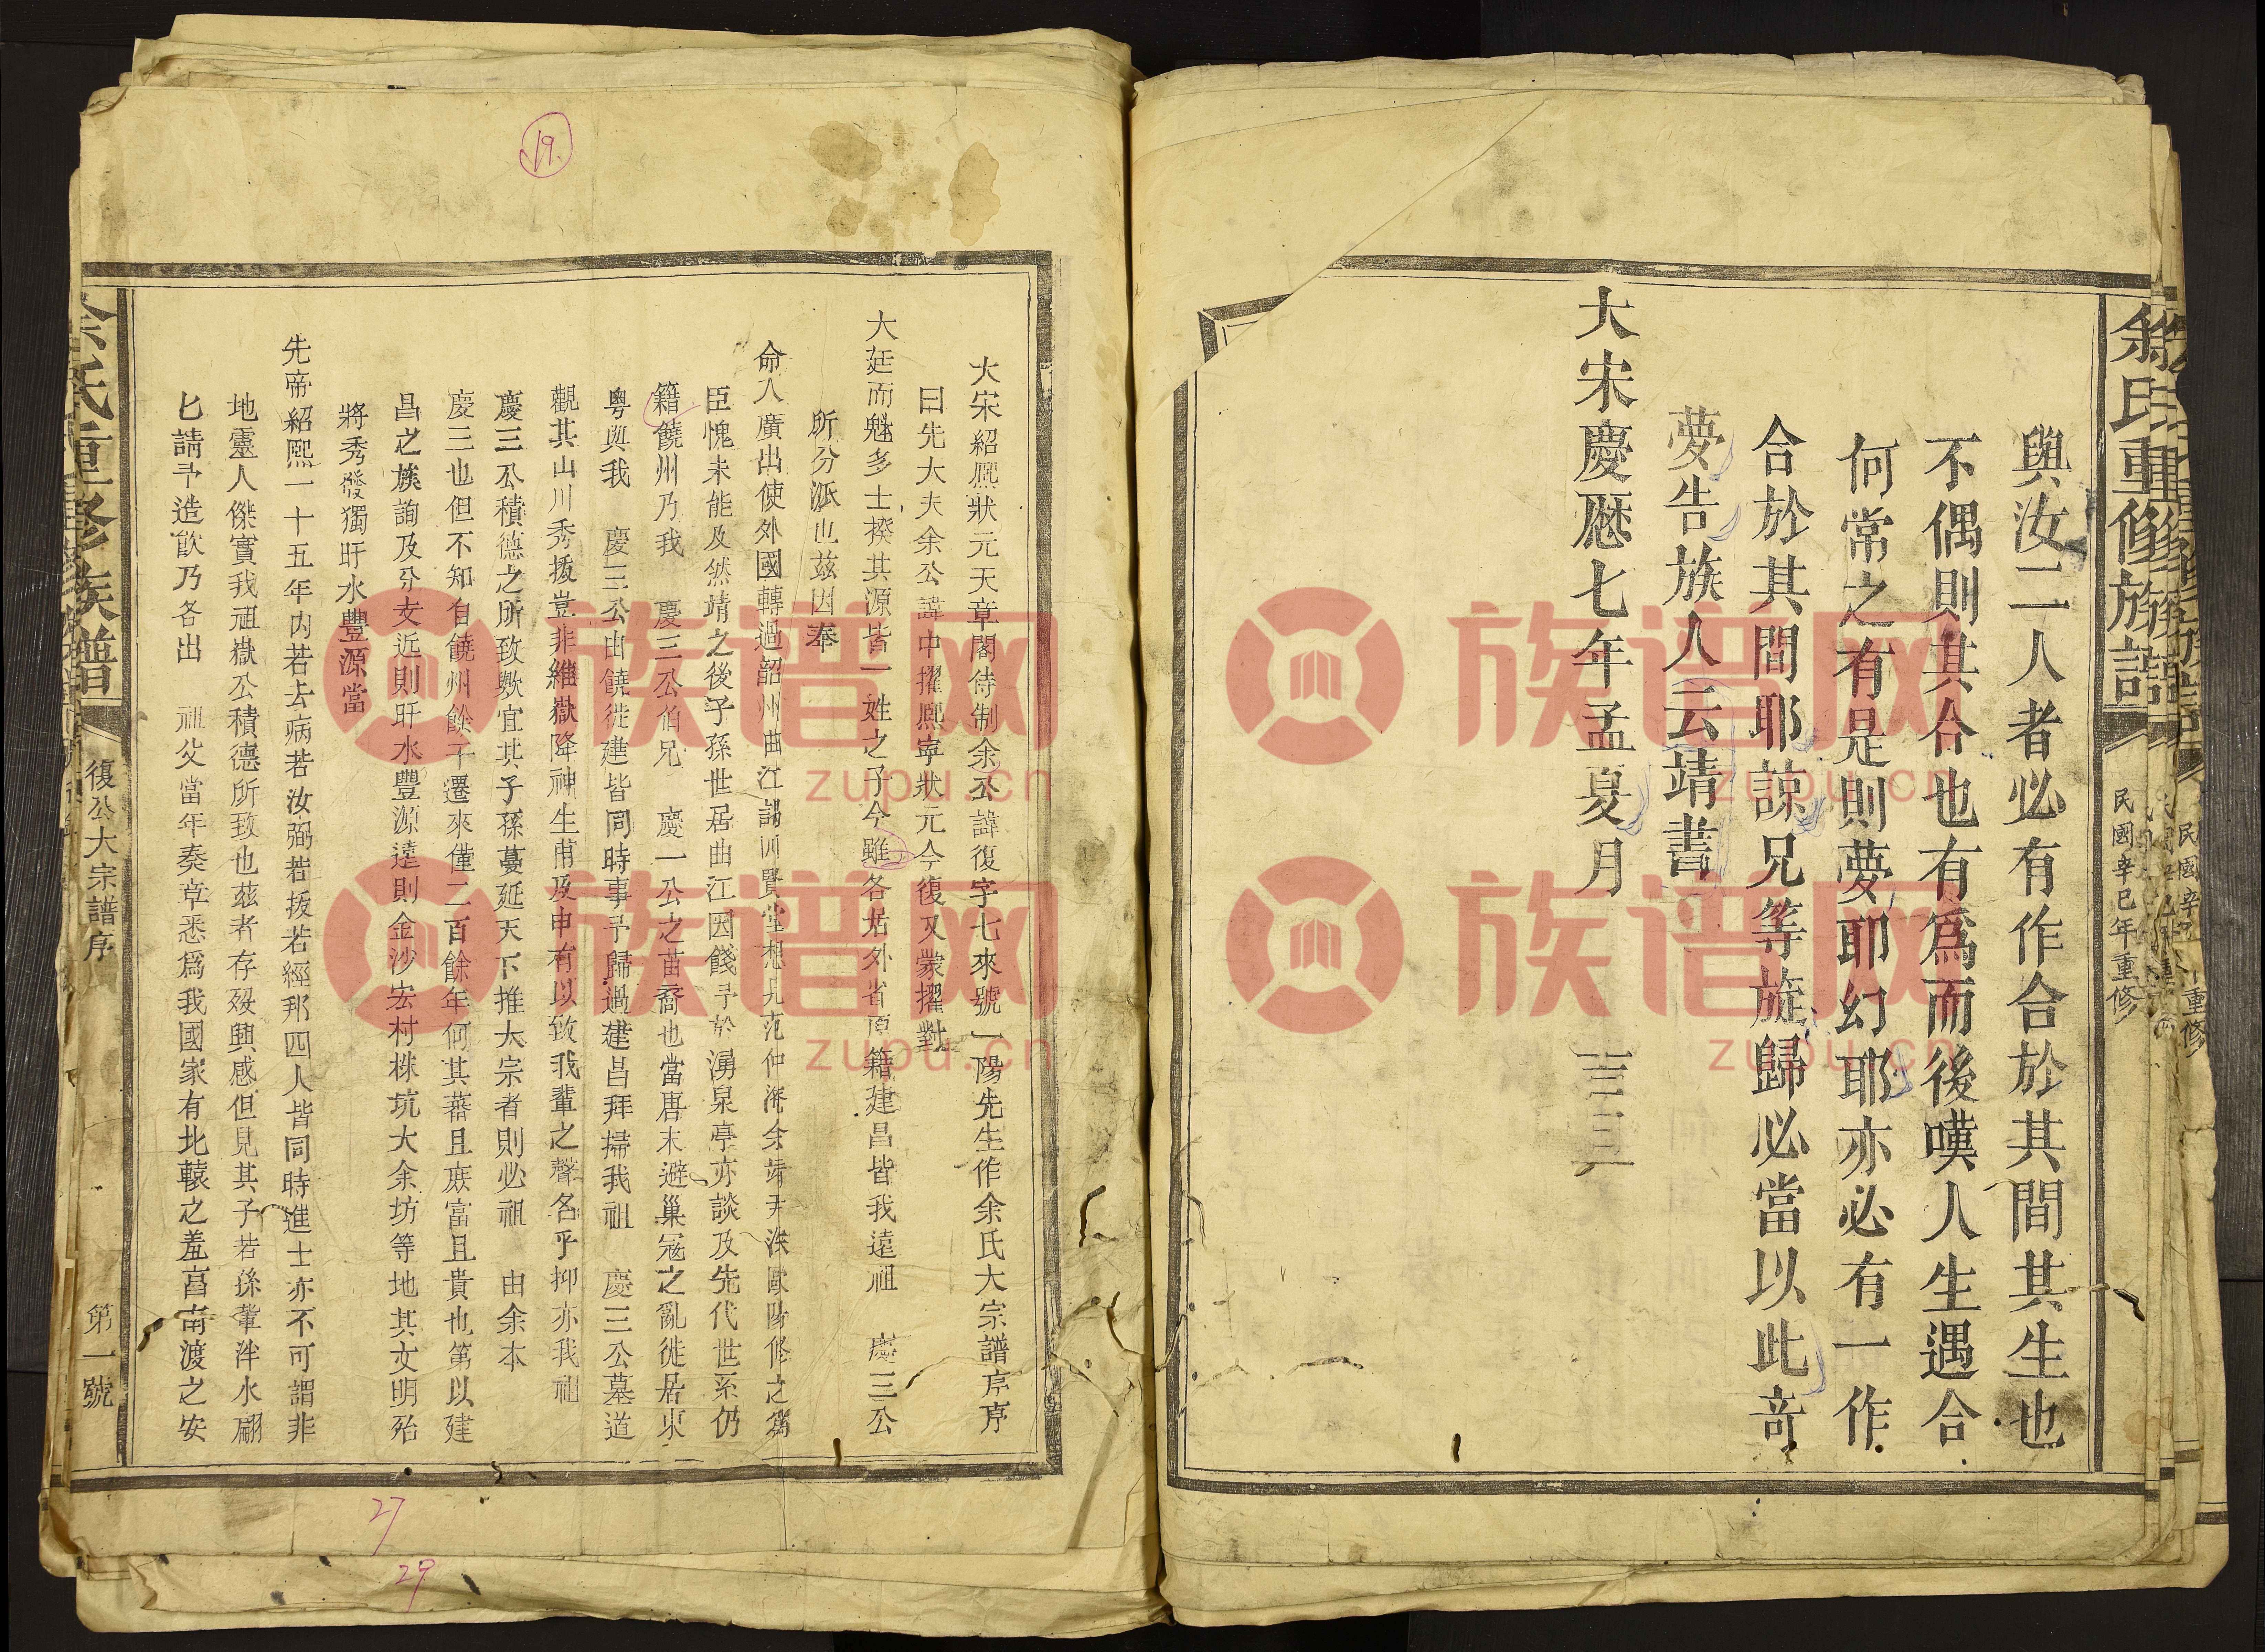 余氏重修族譜
民國辛巳年重修
與汝二人者必有作合於其間其生也
不偶則其合也有為而後嘆人生遇合
何常之有是則夢耶幻耶亦必有一作
合於其間耶諒兄等旋歸必當以此奇
夢告族人云靖書
大宋慶厯七年孟夏月
大宋紹熙狀元天章閣待制余公諱復字七來號一陽先生作余氏大宗譜序序
曰先大夫余公諱中擢熙寧狀元今復又蒙擢對
大廷而魁多士揆其源皆一姓之子今雖各居外省原籍建昌皆我遠祖 慶三公
所分派也茲因奉
命入廣出使外國轉過韶州曲江謁 賢堂想見范仲淹余靖尹洙歐陽修之為
臣愧未能及然靖之後子孫世居曲江因餞予於湧泉亭亦談及先代世系仍
籍饒州乃我 慶三公伯兄 慶一公之苗裔也當唐末避巢寇之亂徙居東
粵與我 慶三公由饒徙建皆同時事予歸過建昌拜掃我祖 慶三公墓道
觀其山川秀拔豈非維嶽降神生甫及申有以致我輩之聲名乎抑亦我祖
慶三公積德之所致歟宜其子孫蔓延天下推大宗者則必祖 由余本
慶三也但不知自饒州餘干遷來僅二百餘年何其蕃且庶富且貴也第以建
昌之族詢及分支近則盱水豐源遠則金沙宏村株坑大余坊等地其文明殆
將秀發獨盱水豐源當
先帝紹熙一十五年內若去病若汝弼若拔若經邦四人皆同時進士亦不可謂非
地靈人傑實我祖嶽公積德所致也茲者存歿興感但見其子若孫肇泮水翩
匕請予造飲乃各出 祖父當年奏章悉為我國家有北轅之羞啚南渡之安
余氏重修族譜
復公大宗譜序
第一號
19
27
29
族谱网
zupu.cn
族谱网
zupu.cn
族谱网
zupu.cn
族谱网
zupu.cn